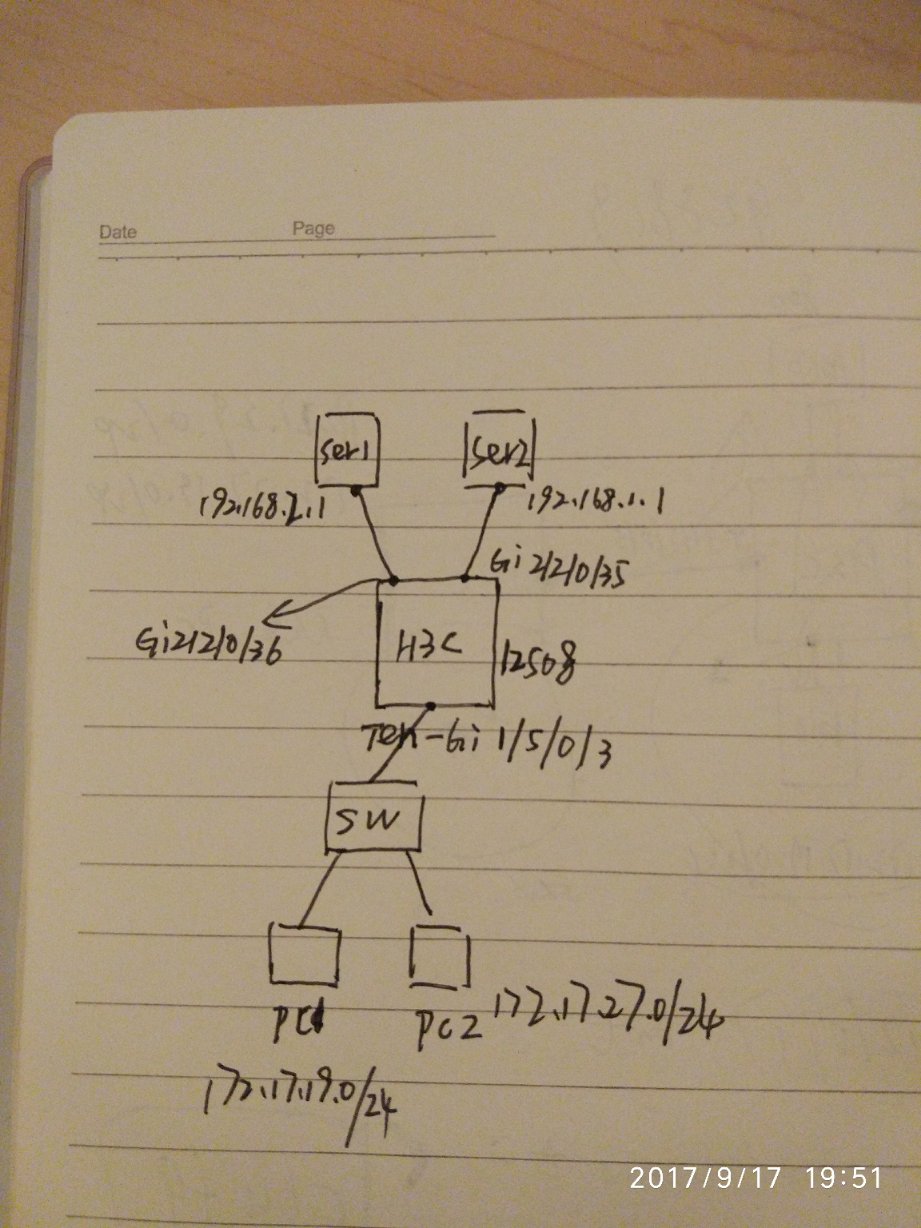 Date Page
ser1 ser2
192.168.2.1 192.168.1.1
Gi2/2/0/35
Gi2/2/0/36
H3C 12508
Ten-Gi 1/5/0/3
SW
PC1 PC2 172.17.27.0/24
172.17.19.0/24
2017/9/17 19:51